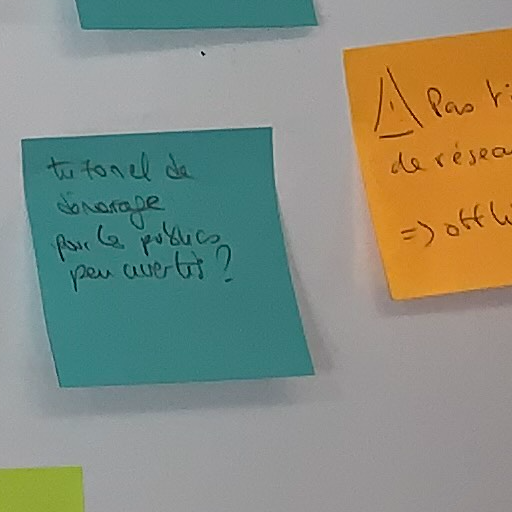 tutoriel de
démarage
pour les publics
peu avertis ?
⚠ Pas
de résea
=> off li